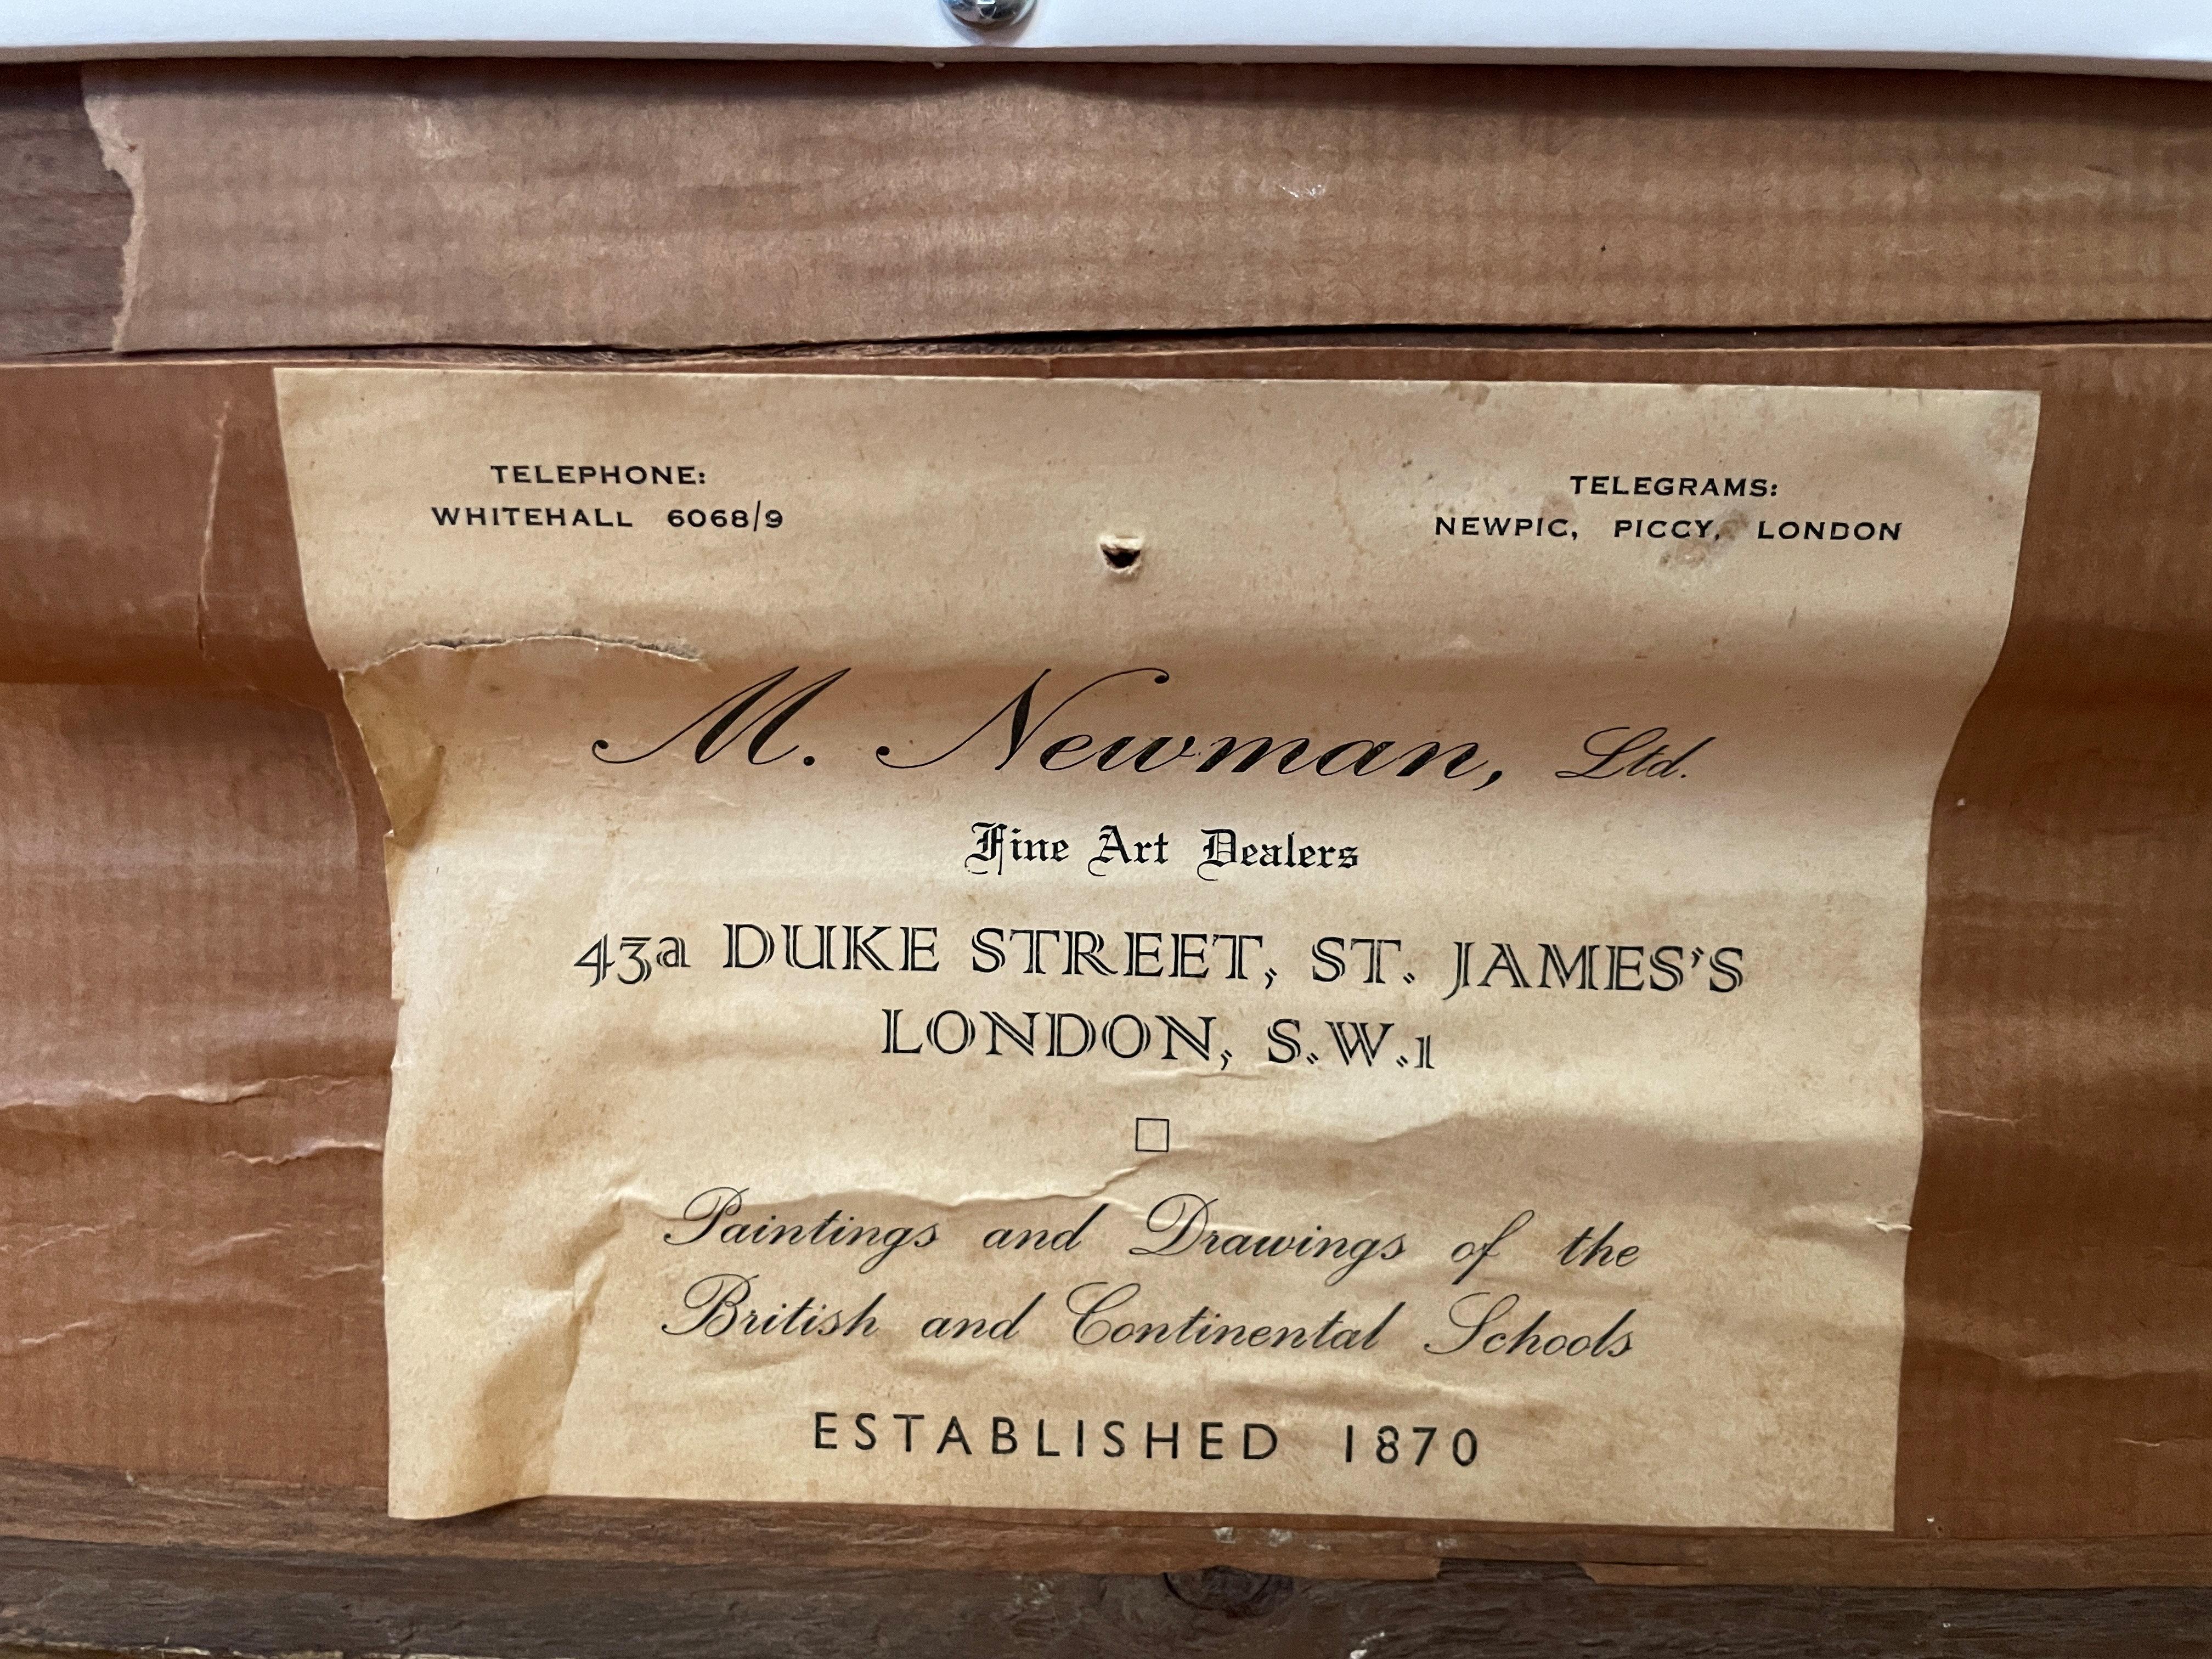 TELEPHONE:
WHITEHALL 6068/9
TELEGRAMS:
NEWPIC, PICCY, LONDON
M. Newman, Ltd.
Fine Art Dealers
43a DUKE STREET, ST. JAMES'S
LONDON, S.W.1
Paintings and Drawings of the
British and Continental Schools
ESTABLISHED 1870